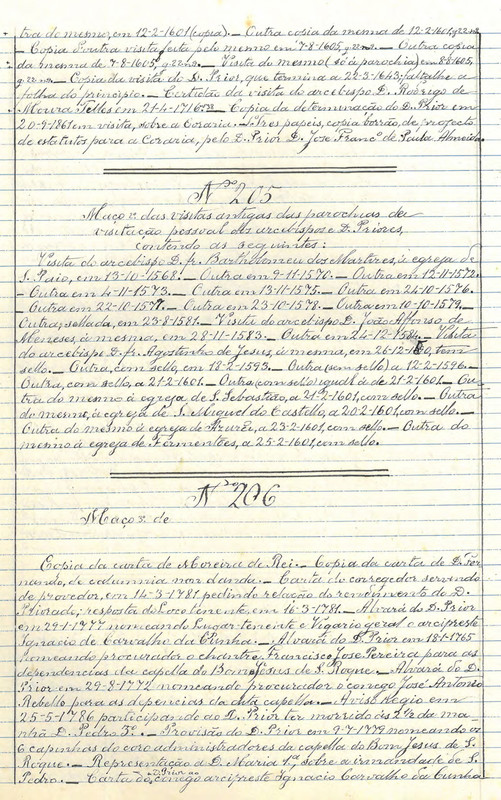 tra do mesmo, em 12-2-1601 (copia). — Outra copia da mesma de 12-2-1601,
— Copia d'outra visita feita pelo mesmo em 7-8-1605, — Outra copia
da mesma de 7-8-1605, — Visita do mesmo (só á parochia) em 8-8-1605,
— Copia da visita do D. Prior, que termina a 22-3-1643; falta-lhe a
folha do principio. — Certidão da visita do arcebispo D. Rodrigo de
Moura Telles em 21-4-1716 — Copia da determinação do D. Prior em
20-9-1861 em visita, sobre a Coraria. — Tres papeis, copia borrão, de projecto
de estatutos para a Coraria, pelo D. Prior D. José Franc.º de Paula Almeida
Nº 205
Maço 3º das visitas antigas das parochias de
visitação pessoal dos arcebispos e D. Priores,
contendo as seguintes:
Visita do arcebispo D. fr. Bartholomeu dos Martires, á egreja de
S. Paio, em 13-10-1568. — Outra em 9-11-1570. — Outra em 12-11-1572.
— Outra em 4-11-1573. — Outra em 13-11-1575. — Outra em 24-10-1576.
— Outra em 22-10-1577. — Outra em 23-10-1578. — Outra em 10-10-1579.
Outra, sellada, em 23-8-1581. — Visita do arcebispo D. João Affonso de
Meneses, á mesma, em 28-11-1583. — Outra em 24-12-1584. — Visita
do arcebispo D. fr. Agostinho de Jesus, á mesma, em 26-12- tem
sello. — Outra, com sello, em 18-2-1593. — Outra (sem sello) a 12-2-1596.
Outra, com sello, a 21-2-1601. — Outra (com sello) igual á de 21-2-1601. — Ou-
tra do mesmo á egreja de S. Sebastião, a 21-2-1601, com sello. — Outra
do mesmo, á egreja de S. Miguel do Castello, a 20-2-1601, com sello. —
Outra do mesmo á egreja de Azurei, a 23-2-1601, com sello. — Outra do
mesmo á egreja de Fermentões, a 25-2-1601, com sello.
Nº 206
Maço 3º de
Copia da carta de Moreira de Rei. — Copia da carta de D. Fer-
nando, de calumnia non danda. — Carta do corregedor servindo
de provedor, em 14-3-1781 pedindo relação do rendimento do D.
Priorado; resposta do Loco tenente, em 16-3-1781. — Alvará do D. Prior
em 29-1-1777 nomeando Lugar-tenente e Vigario geral o arcipreste
Ignacio de Carvalho da Cunha. — Alvará do D. Prior em 18-1-1765
nomeando procurador o chantre, Francisco José Pereira para as
dependencias da capella do Bom Jesus de S. Roque. — Alvará do D.
Prior em 29-8-1772 nomeando procurador o conego José Antonio
Rebello para as depencias da dita capella. — Aviso Regio em
25-5-1786 participando ao D. Prior ter morrido ás 2½ da ma-
nhã D. Pedro 3º. — Provisão do D. Prior em 9-7-1779 nomeando os
6 capinhas do coro administradores da capella do Bom Jesus de S.
Roque. — Representação a D. Maria 1ª, sobre a irmandade de S.
Pedro. — Carta do conego arcipreste Ignacio Carvalho da Cunha
ao D. Prior no